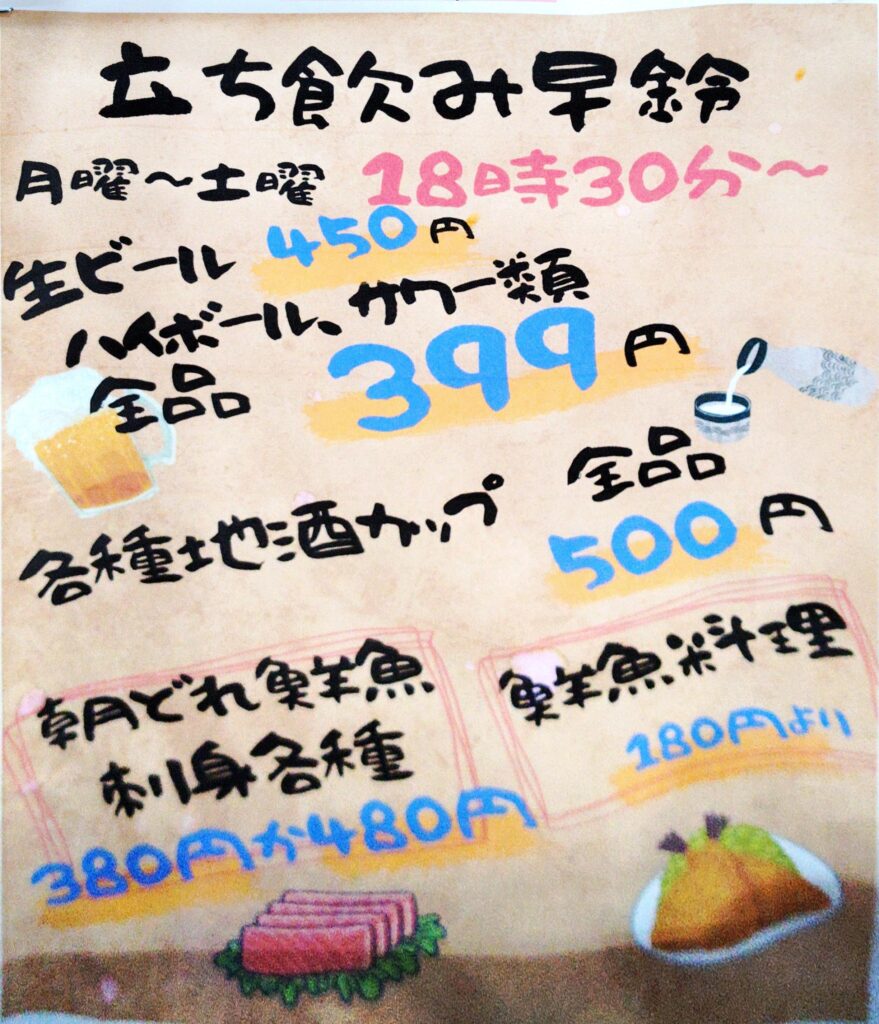 立ち飲み早鈴
月曜〜土曜 18時30分〜
生ビール 450円
ハイボール、サワー類
全品 399円
各種地酒カップ 全品
500円
朝どれ鮮魚
刺身各種
380円か480円
鮮魚料理
180円より